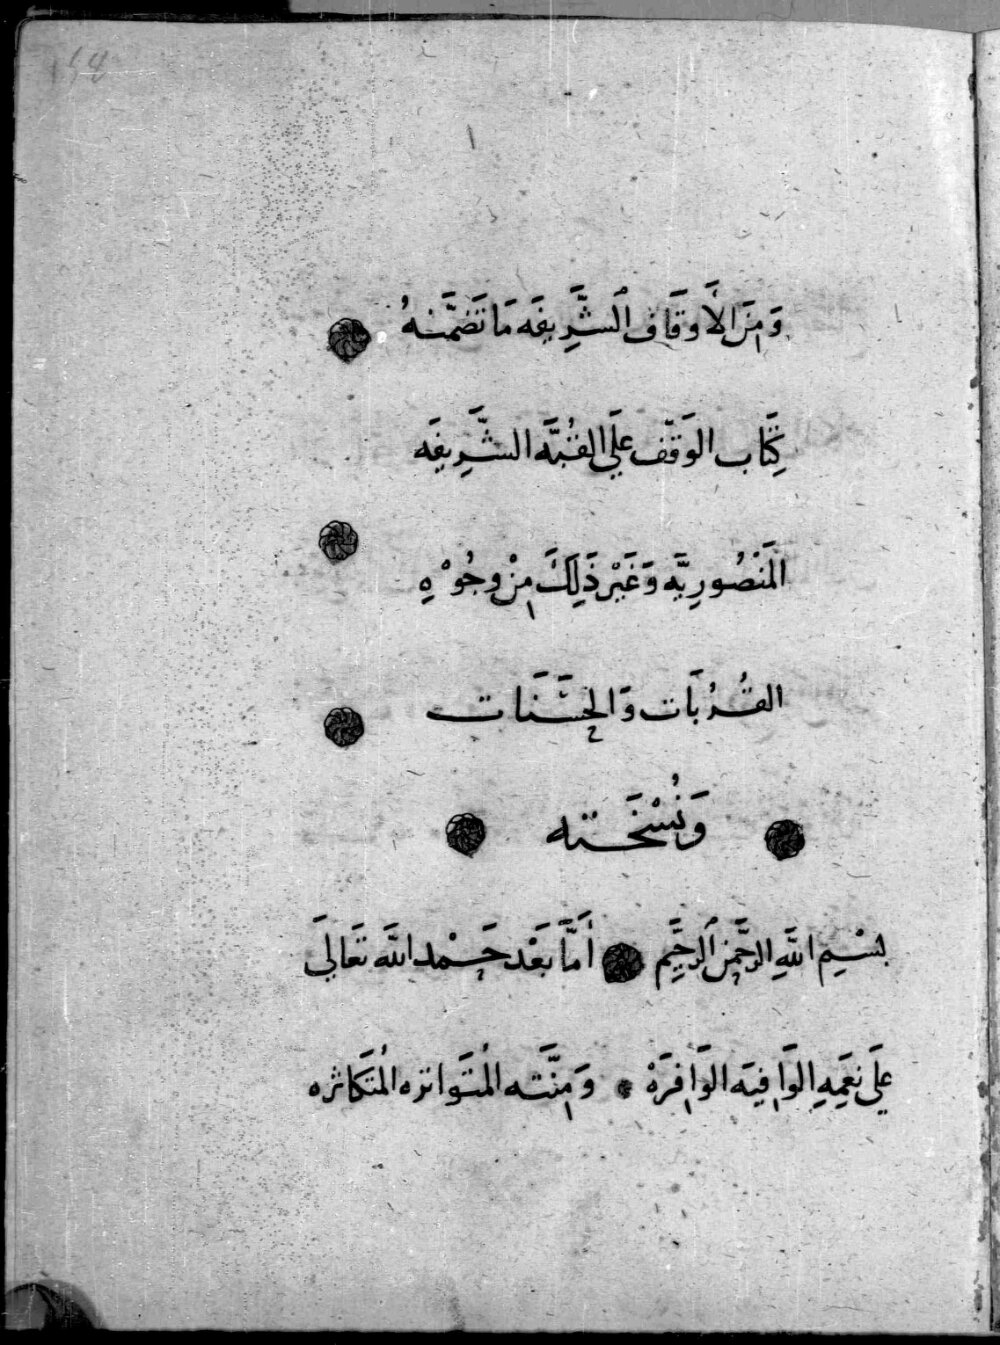 وَمِنَ الأَوقَاف الشَّرِيفَه مَا تَضَمَّنهُ
كِتَاب الوَقْف عَلَى القُبَّه الشَّرِيفَه
المَنْصُورِيَّه وَغَيْر ذَلِكَ مِنْ وجُوْهِ
القُرُبَات وَالحَسَنَات
وَنُسْخَته
بسْمِ اللَّهِ الرَّحْمَنِ الرَّحِيَم أَمَّا بَعْد حَمْد اللَّه تَعَالَى
عَلَى نِعَمِهِ الوَافِيَه الوَافِرَهْ وَمِنَّته المُتَوَاتره المُتَكَاثره